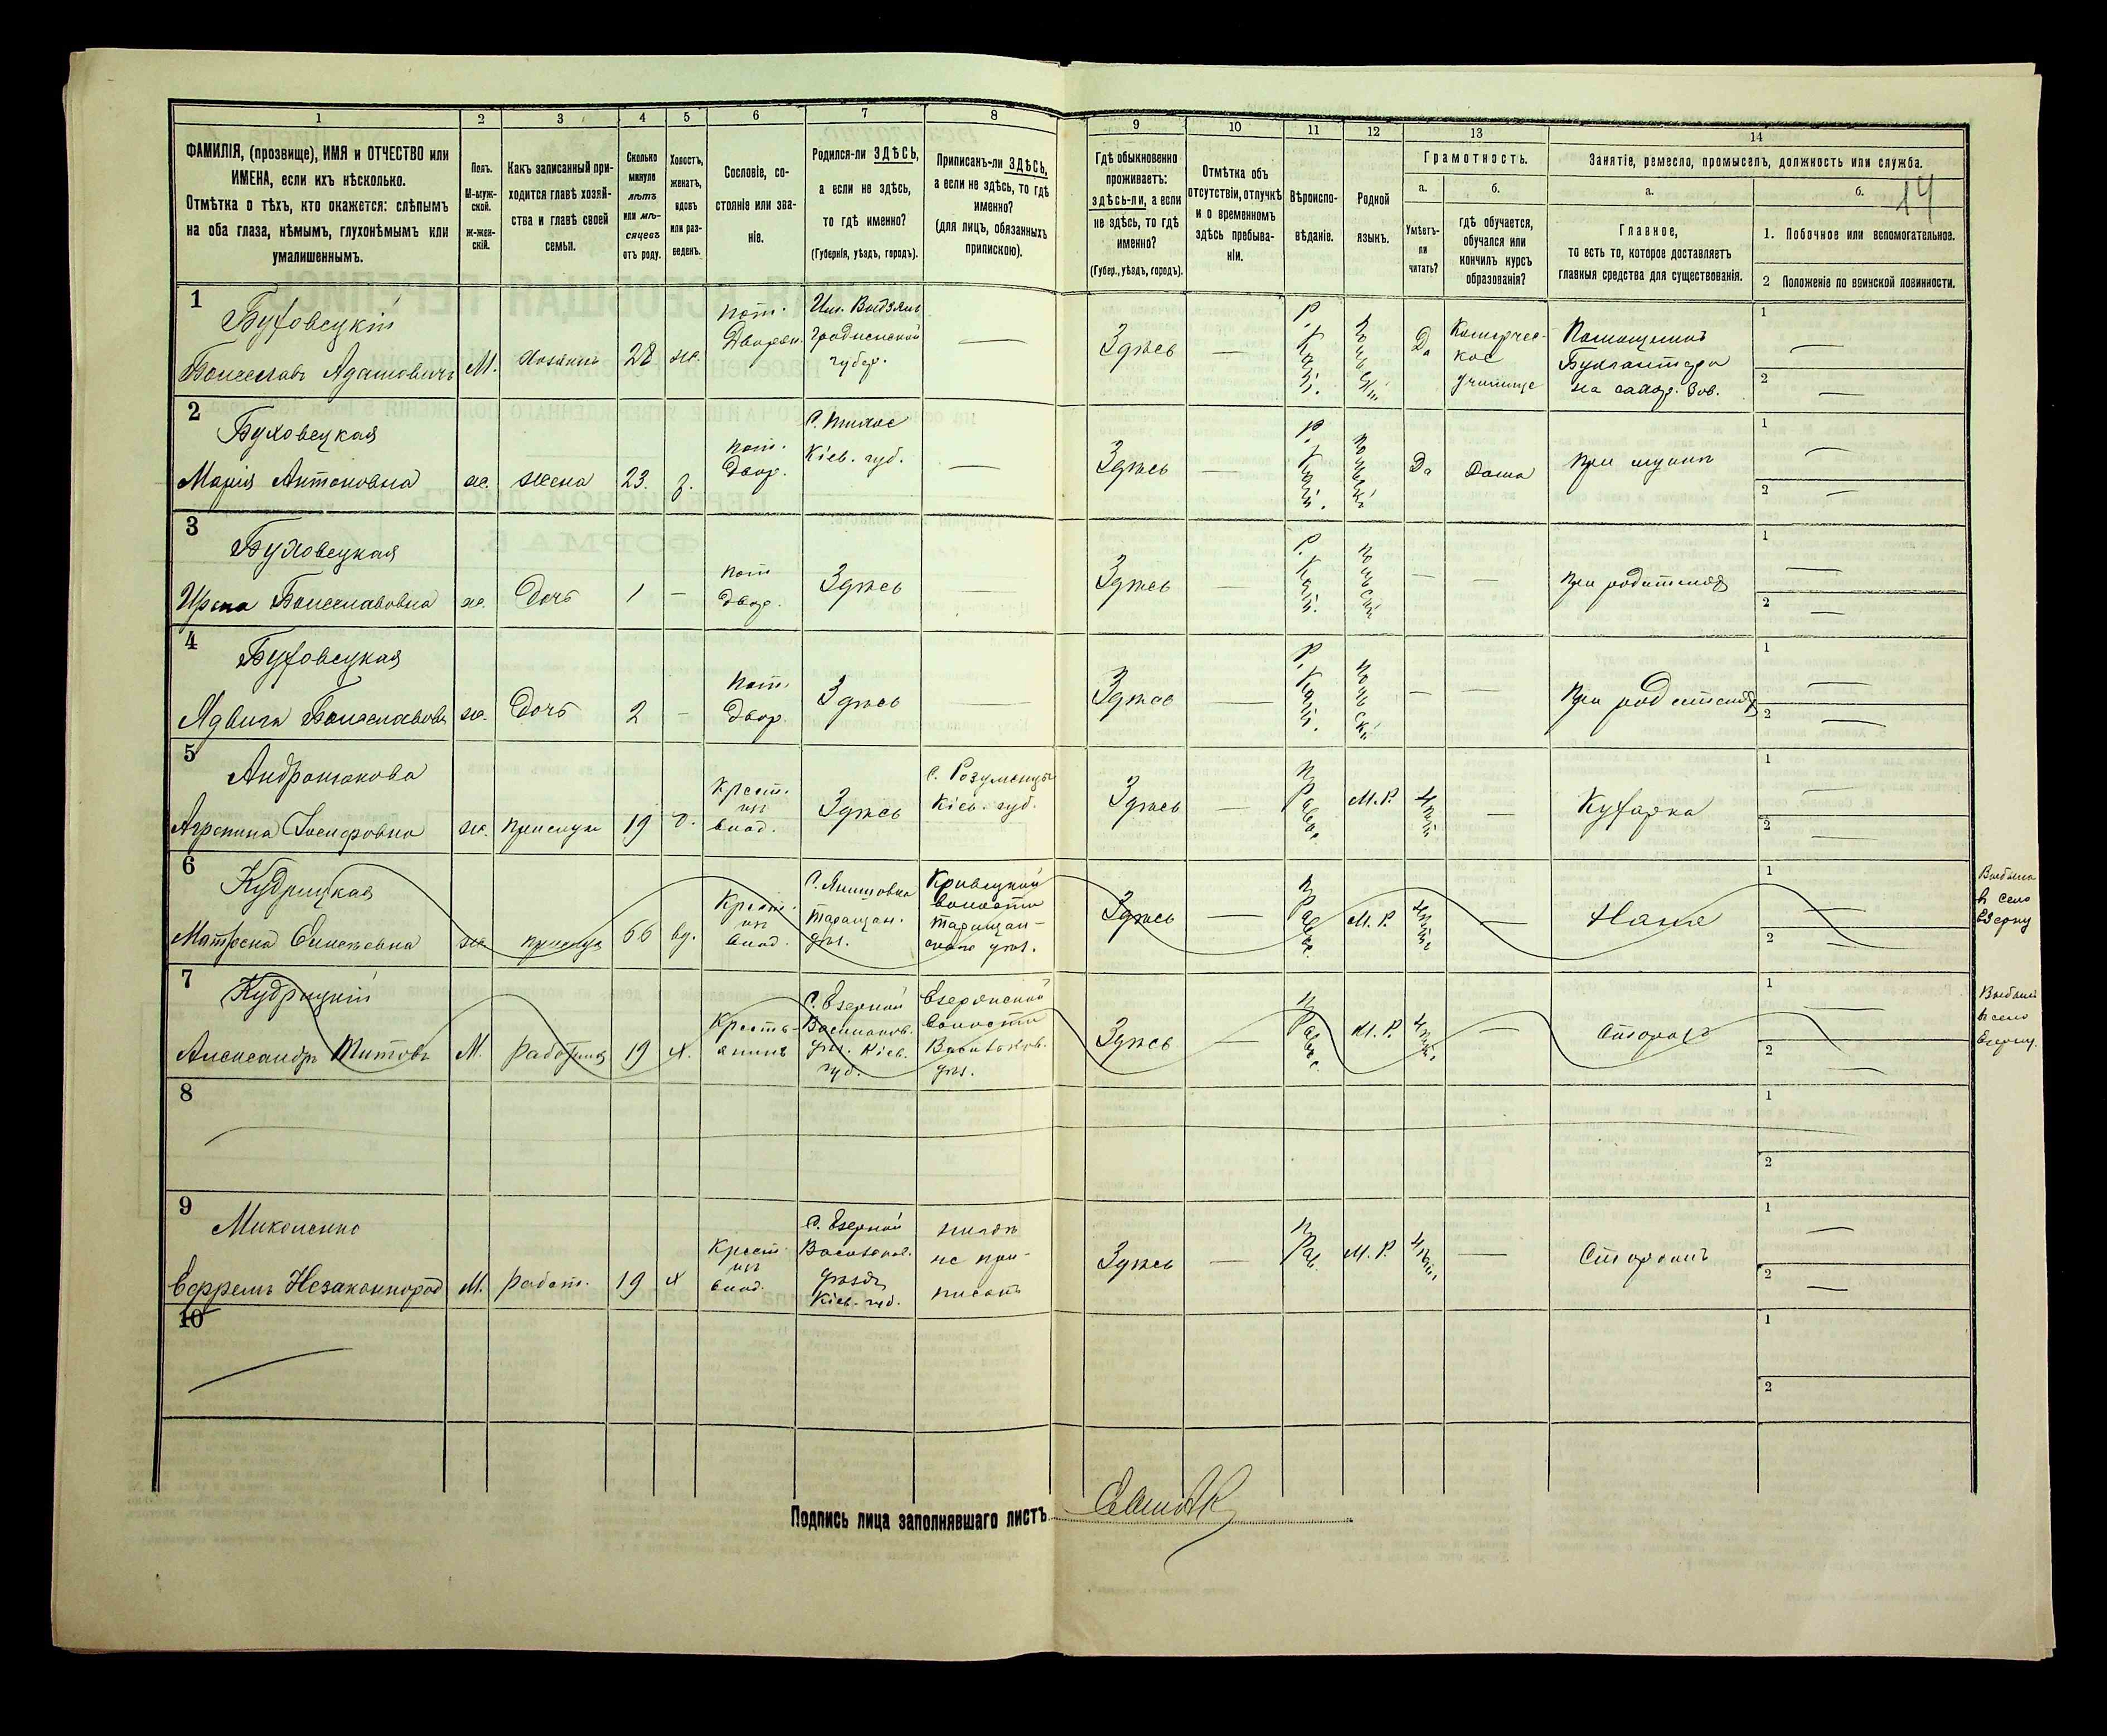 1 2 3 4 5 6 7 8 9 10 11 12 13 14
ФАМИЛІЯ, (прозвище), ИМЯ и ОТЧЕСТВО или
ИМЕНА, если ихъ нѣсколько.
Отмѣтка о тѣхъ, кто окажется: слѣпымъ
на оба глаза, нѣмымъ, глухонѣмымъ или
умалишеннымъ.
Полъ.
М-муж-
ской.
ж-жен-
скій.
Какъ записанный при-
ходится главѣ хозяй-
ства и главѣ своей
семьи.
Сколько
минуло
лѣтъ
или мѣ-
сяцевъ
отъ роду.
Холостъ,
женатъ,
вдовъ
или раз-
веденъ.
Сословіе, со-
стояніе или зва-
ніе.
Родился-ли ЗДѢСЬ,
а если не здѣсь,
то гдѣ именно?
(Губернія, уѣздъ, городъ).
Приписанъ-ли ЗДѢСЬ,
а если не здѣсь, то гдѣ
именно?
(для лицъ, обязанныхъ
припискою).
Гдѣ обыкновенно
проживаетъ:
здѣсь-ли, а если
не здѣсь, то гдѣ
именно?
(Губер., уѣздъ, городъ).
Отмѣтка объ
отсутствіи, отлучкѣ
и о временномъ
здѣсь пребыва-
ніи.
Вѣроиспо-
вѣданіе.
Родной
языкъ.
Грамотность.
а.
Умѣетъ-
ли
читать?
б.
гдѣ обучается,
обучался или
кончилъ курсъ
образованія?
Занятіе, ремесло, промыселъ, должность или служба.
а.
Главное,
то есть то, которое доставляетъ
главныя средства для существованія.
б.
14
1. Побочное или вспомогательное.
2 Положеніе по воинской повинности.
1
Буховецкій
Болеславъ Адамовичъ
М.
Хозяинъ
28
же.
пот.
Дворян.
Гродненской
губер.
—
Здѣсь
—
Р. Кат.
Польскій
Да
Комерчес-
кое
училище
Помощникъ
Бухгалтера
на сахар. Зав.
1 —
2 —
2
Буховецкая
Марія Антоновна
же.
жена
23.
з.
пот.
Двор.
Кіев. губ.
—
Здѣсь
—
Р. Кат.
Польскій
Да
Дома
При мужѣ
1 —
2 —
3
Буховецкая
Ирена Болеславовна
же.
Дочь
1
—
пот
двор.
Здѣсь
—
Здѣсь
—
Р. Кат.
Польскій
—
—
При родителяхъ
1 —
2 —
4
Буховецкая
Ядвига Болеславовн
же.
Дочь
2
—
Пот.
Двор.
Здѣсь
—
Здѣсь
—
Р. Кат.
Польскій
—
—
При родителяхъ
1 —
2 —
5
Агрепина Іосифовна
же.
прислуга
19
Крест.
изъ
влад.
Здѣсь
с. Розуменцы
Кіев. губ.
Здѣсь
—
Правос.
М.Р.
—
Кухарка
1 —
2 —
6
Кудрицкая
Матрена
же
прислуга
66
вд.
Крест.
изъ
влад.
Таращан.
уѣз.
Кривецкой
волости
Таращан-
скаго уѣз.
Здѣсь
—
Правос.
М. Р.
—
Няня
1 —
2 —
Выбыла
въ село
Езерну
7
Кудрицкій
Александръ Титовъ
М.
Работник
19
х.
Кресть-
янинъ
С. Езерной
Васильков.
уѣз. Кіев.
губ.
Езерянской
волости
Васильков.
уѣз.
Здѣсь
—
Правос.
М. Р.
—
Сторожъ
1 —
2 —
Выбылъ
въ село
Езерну.
8
1
2
9
Миколенко
Ефремъ Незаконнород
М.
работ.
19
х
Крест.
изъ
влад.
С. Езерной
Васильков.
уѣзда
Кіев. губ.
нигдѣ
не при-
писанъ
Здѣсь
—
Прав.
М. Р.
—
1 —
2 —
10
1
2
Подпись лица заполнявшаго листъ